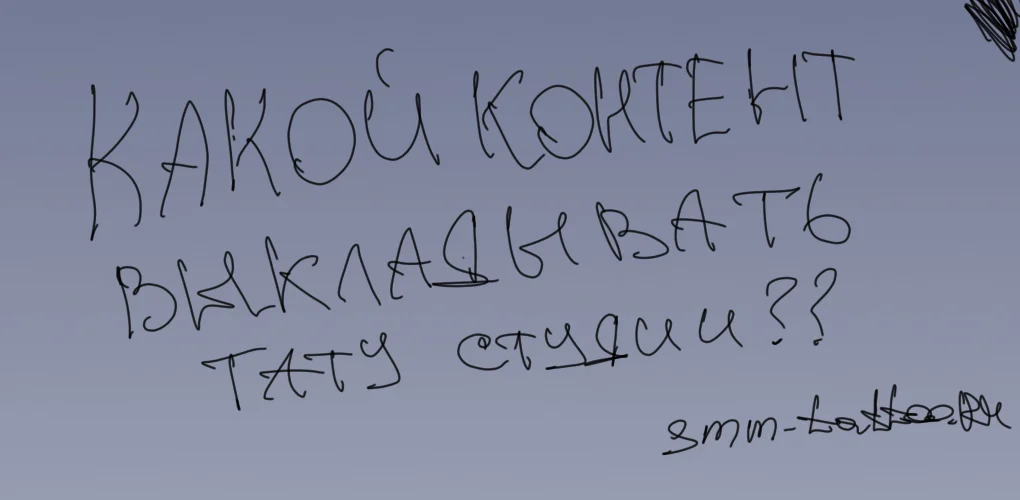 КАКОЙ КОНТЕНТ
ВЫКЛАДЫВАТЬ
ТАТУ СТУДИИ??
smm-tattoo.RU